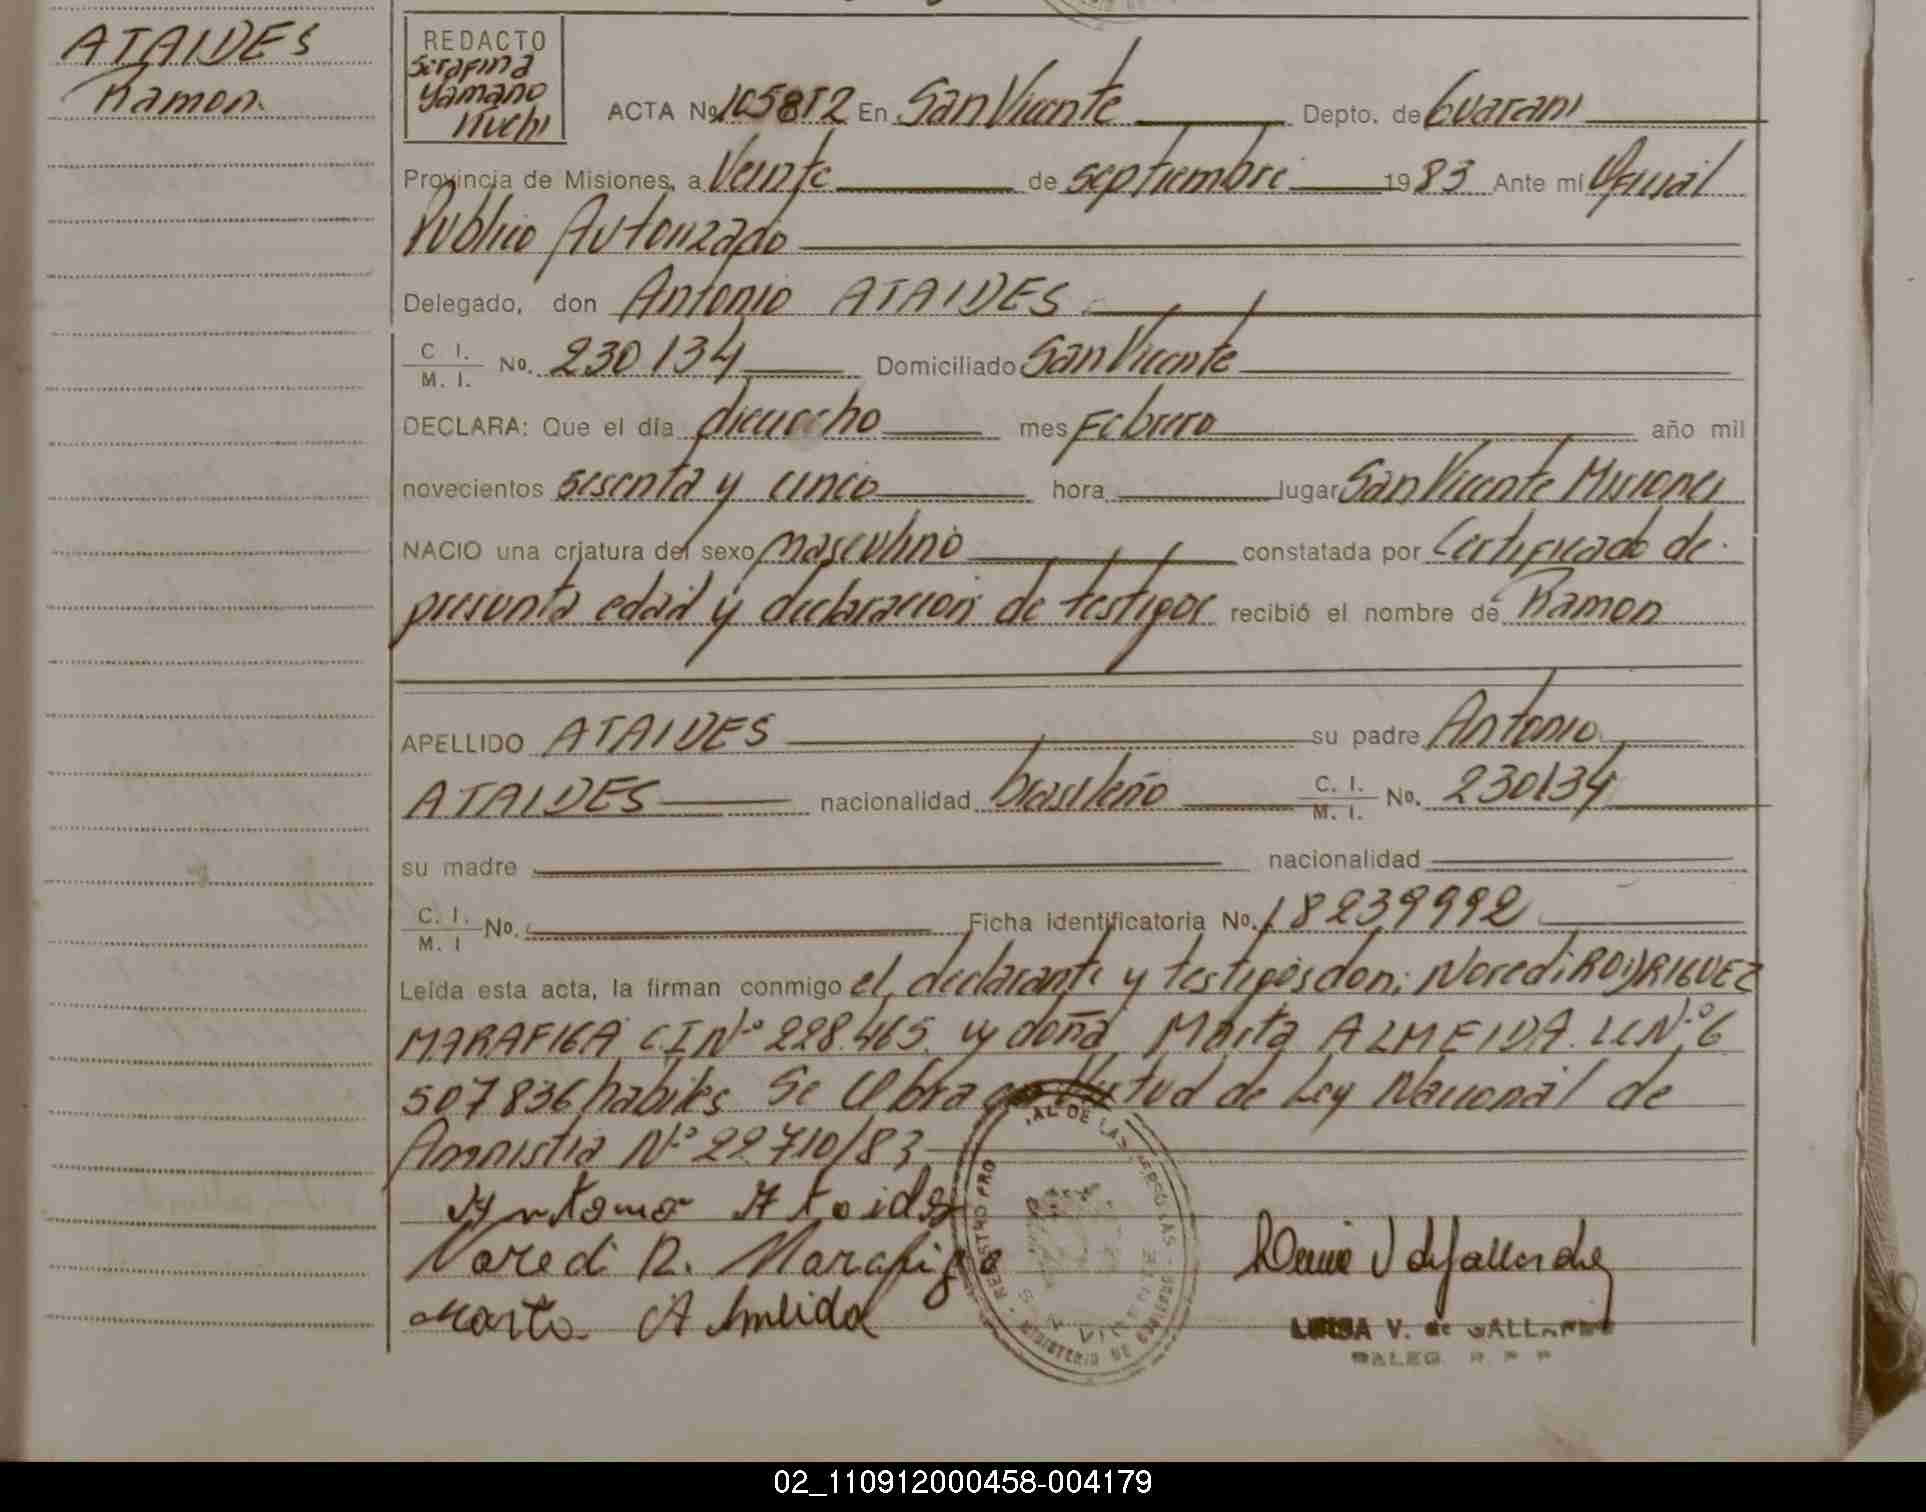 ATAIDES
Ramon
REDACTO
Serafina
Yamano
Kuchi
ACTA No 105812 En San Vicente Depto. de Guarani
Provincia de Misiones, a Veinte de septiembre 1983 Ante mí Oficial
Publico Autorizado
Delegado, don Antonio ATAIDES
C. I. / M. I. No. 230134 Domiciliado San Vicente
DECLARA: Que el día dieciocho mes Febrero año mil
novecientos sesenta y cinco hora lugar San Vicente Misiones
NACIO una criatura del sexo masculino constatada por Certificado de
presunta edad y declaracion de testigos recibió el nombre de Ramon
APELLIDO ATAIDES su padre Antonio
ATAIDES nacionalidad brasileño C. I. / M. I. No. 230134
su madre nacionalidad
C. I. / M. I No. Ficha identificatoria No. 18239992
Leída esta acta, la firman conmigo el declarante y testigos don: Noredi RODRIGUEZ
MARAFIGA C.I Nº 228.465 y doña Marta ALMEIDA. LC Nº 6
507836 habiles Se Obra en Virtud de Ley Nacional de
Amnistia Nº 22710/83
Antonio Ataides
Noredi R. Marafiga
Marta A Almeida
LUISA V. de GALLARDO
DELEG. R. P. P
REGISTRO PRO AL DE LAS PERSONAS
MINISTERIO DE
02_110912000458-004179